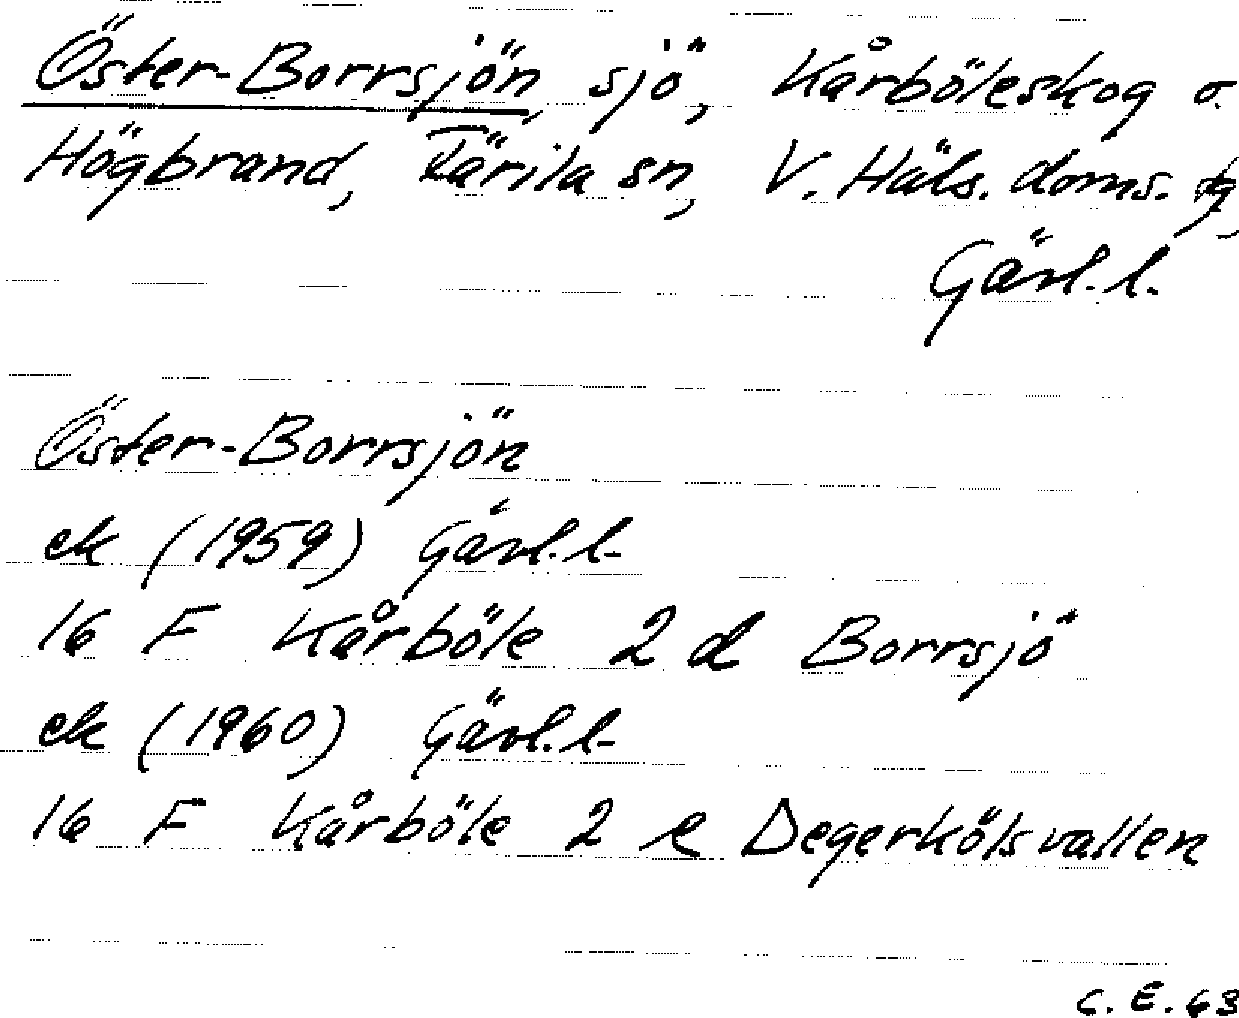 Öster-Borrsjön, sjö, Kårböleskog o.
Högbrand, Färila sn, V. Häls. doms. tg,
Gävl. l.
Öster-Borrsjön
ek (1959) Gävl. l.
16 F Kårböle 2 d Borrsjö
ek (1960) Gävl. l.
16 F Kårböle 2 e Degerkölsvallen
C. E. 63